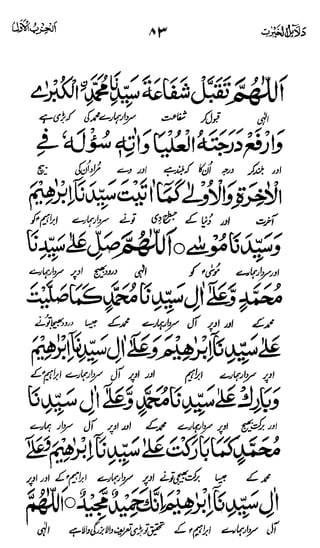 دلائل الخیرات ۸۳ الحزب الاول
اَللّٰهُمَّ تَقَبَّلْ شَفَاعَةَ سَيِّدِنَا مُحَمَّدِ ِۨالْكُبْرٰى
الٰہی قبول کر شفاعت سردار ہمارے محمد کی کہ بڑی ہے
وَارْفَعْ دَرَجَتَهُ الْعُلْيَا وَاٰتِهٖ سُؤْلَهٗ فِى
اور بلند کر درجہ اُن کا کہ بلند ہے اور دے مراد اُن کی بیچ
الْاٰخِرَةِ وَالْاُوْلٰى كَمَآ اٰتَيْتَ سَيِّدَنَآ اِبْرٰهِيْمَ
آخرت اور دُنیا کے جیسے دی تونے سردار ہمارے ابراہیم کو
وَسَيِّدَنَا مُوْسٰى ○ اَللّٰهُمَّ صَلِّ عَلٰى سَيِّدِنَا
اور سردار ہمارے موسیٰ کو الٰہی درود بھیج اوپر سردار ہمارے
مُحَمَّدٍ وَّعَلٰٓى اٰلِ سَيِّدِنَا مُحَمَّدٍ كَمَا صَلَّيْتَ
محمد کے اور اوپر آل سردار ہمارے محمد کے جیسا درود بھیجا تونے
عَلٰى سَيِّدِنَآ اِبْرٰهِيْمَ وَعَلٰٓى اٰلِ سَيِّدِنَآ اِبْرٰهِيْمَ
اوپر سردار ہمارے ابراہیم اور اوپر آل سردار ہمارے ابراہیم کے
وَبَارِكْ عَلٰى سَيِّدِنَا مُحَمَّدٍ وَّعَلٰٓى اٰلِ سَيِّدِنَا
اور برکت بھیج اوپر سردار ہمارے محمد کے اور اوپر آل سردار ہمارے
مُحَمَّدٍ كَمَا بَارَكْتَ عَلٰى سَيِّدِنَآ اِبْرٰهِيْمَ وَعَلٰٓى
محمد کے جیسا برکت بھیجی تونے اوپر سردار ہمارے ابراہیم کے اور اوپر
اٰلِ سَيِّدِنَآ اِبْرٰهِيْمَ اِنَّكَ حَمِيْدٌ مَّجِيْدٌ ○ اَللّٰهُمَّ
آل سردار ہمارے ابراہیم کے تحقیق تو بڑی تعریف والا بزرگی والا ہے الٰہی